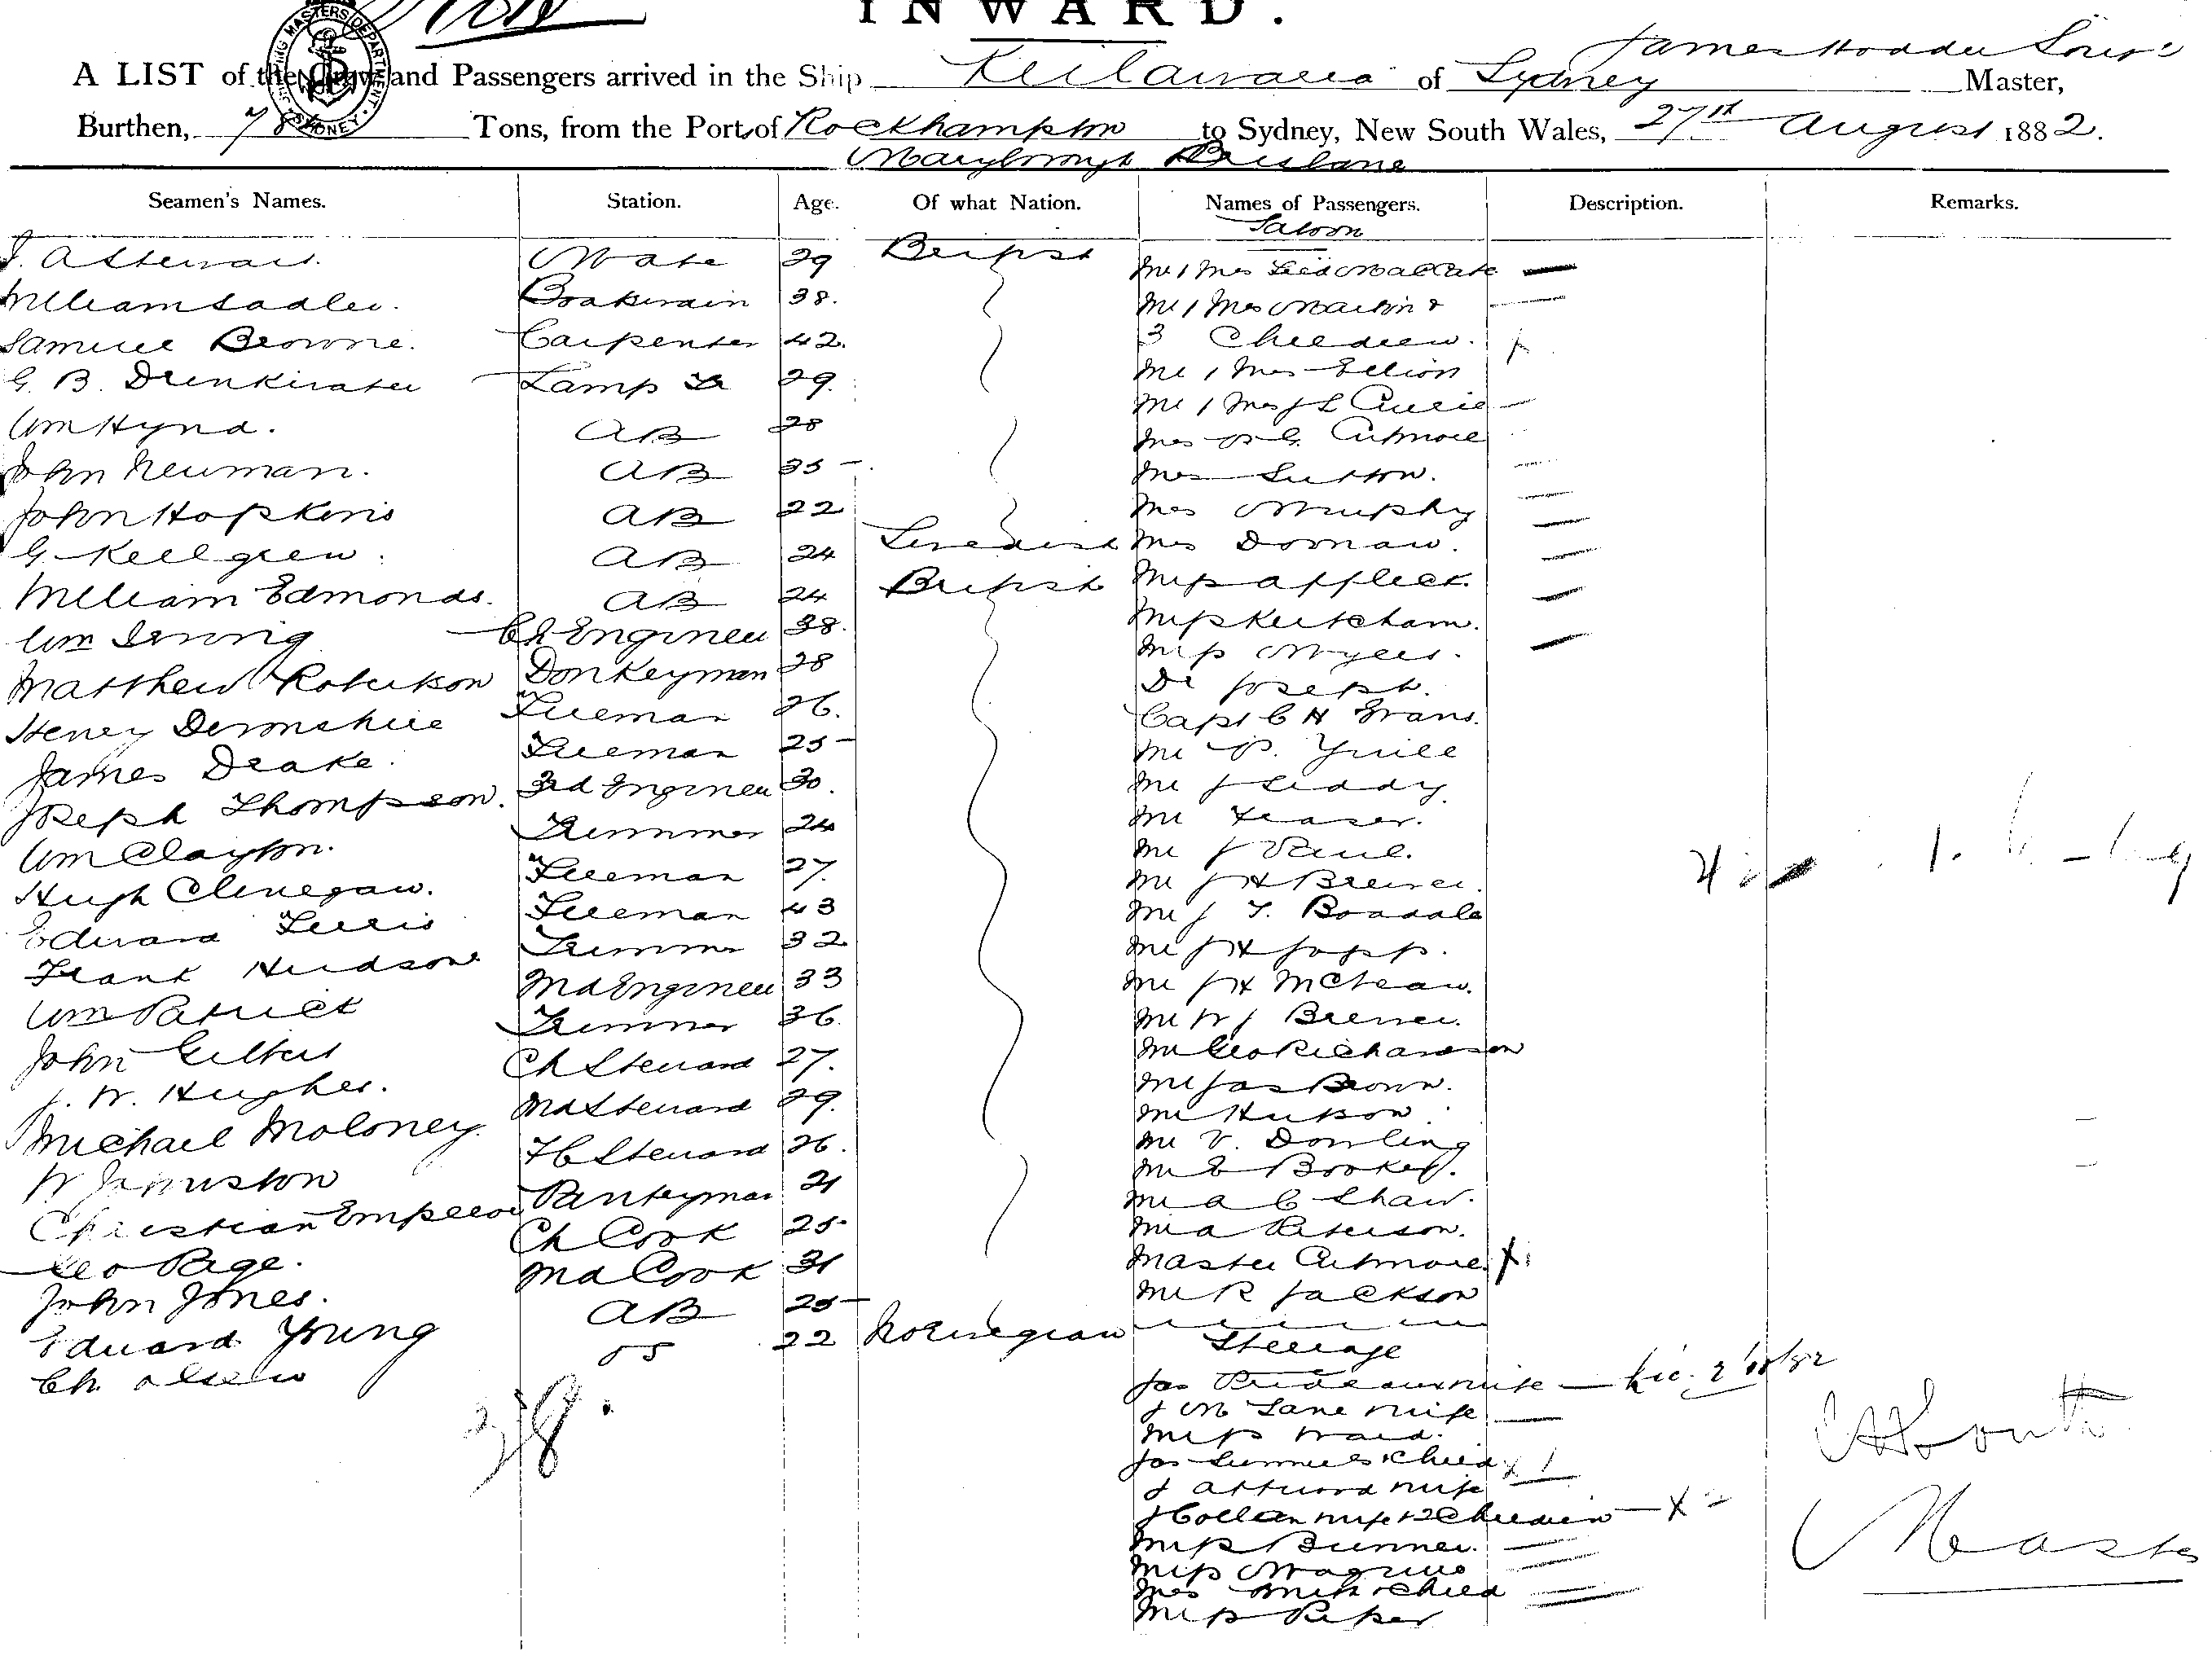 INWARD.
A LIST of the Crew and Passengers arrived in the Ship Keilawarra of Sydney James Hodder Master,
Burthen, 784 Tons, from the Port of Rockhampton to Sydney, New South Wales, 27th August 1882.
Maryborough Brisbane
Seamen's Names. Station. Age. Of what Nation. Names of Passengers. Description. Remarks.
Saloon
J. A Stewart. Mate 29 British Mr & Mrs
William Sadler. Boatswain 38. Mr & Mrs Martin &
Samuel Browne. Carpenter 42. 3 Children.
G. B. Drinkwater Lamp Tr 29. Mr & Mrs Ellion
Mr & Mrs J L Currie
Wm Hynd. AB 28 Mrs Cutmore
John Newman. AB 35 Mrs Sutton.
John Hopkins AB 22 Mrs Murphy
G. Kellgren. AB 24 Swedish Mrs Dornan.
William Edmonds. AB 24 British Miss Affleck.
Wm Irving Ch Engineer 38. Miss Ketcham.
Miss Myers.
Matthew Robertson Donkeyman 28 Dr Joseph.
Henry Devonshire Fireman 26. Capt C H Evans.
James Drake. Fireman 25 Mr P. Yuill
Joseph Thompson. 3rd Engineer 30. Mr J Liddy
Mr Fraser.
Wm Clayton. Trimmer 24 Mr J Paul.
Hugh Clenegaw. Fireman 27. Mr J H Brewer.
Edward Ferris Fireman 43 Mr J T. Boadale
Frank Hudson Trimmer 32 Mr J H Jopp.
Wm Patrick 2nd Engineer 33 Mr J H McLean.
John Gilbert Trimmer 36 Mr W J Brewer.
J. W. Hughes. Ch Steward 27. Mr Geo Richardson
Mr Jas Brown.
Michael Moloney. 2nd Steward 29. Mr Hutson
Mr V. Dowling
W Johnston F C Steward 26. Mr E Booker.
Christian Emperor Pantryman 21 Mr A C Shaw.
Geo Page. Ch Cook 25 Mr A Peterson.
John Jones. 2nd Cook 31 Master Cutmore.
Edward Young AB 25 Mr R Jackson
Ch. Olsen OS 22 Norwegian Steerage
38.
Jas Prideaux wife
J M Lane wife
Miss Ward.
Jas Summers & Child x 1
J Attwood wife
J Collan wife & 2 Children x 2
Miss Bunner.
Miss Maguire
Mrs Smith & Child
Miss Piper
Master